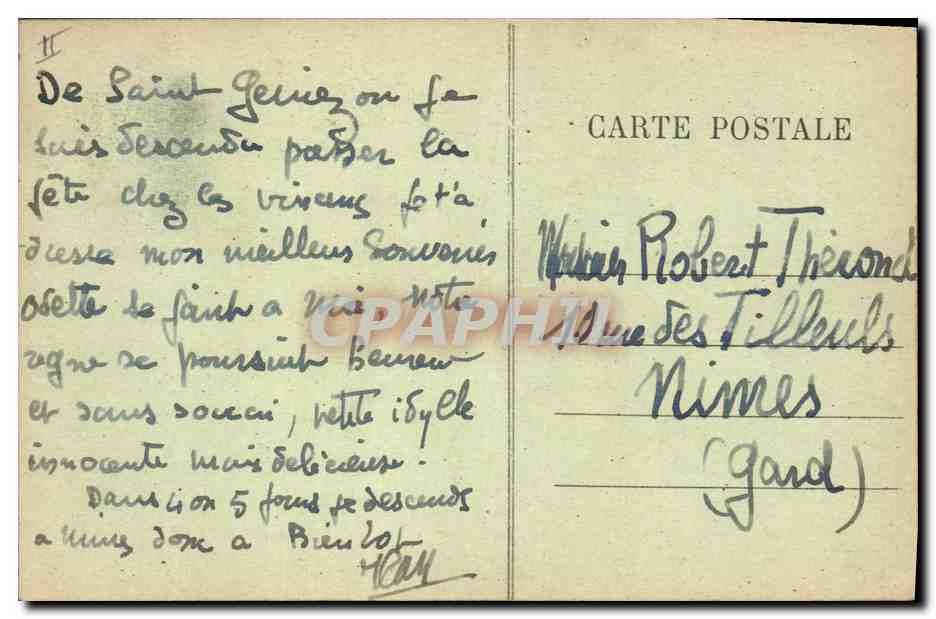 II
De Saint Geniez on je
suis descendu passer la
fête chez les vivians je t'a
dresse mon meilleurs Souvenirs
odette se joint a moi, Notre
regne se poursuit heureux
et sans soucis, petite idylle
innocente mais delicieuse.
Dans 4 on 5 jours je descends
a Nimes donc a Bientot
CARTE POSTALE
Robert Thérond
rue des Tilleuls
Nimes
(Gard)
CPAPHIL